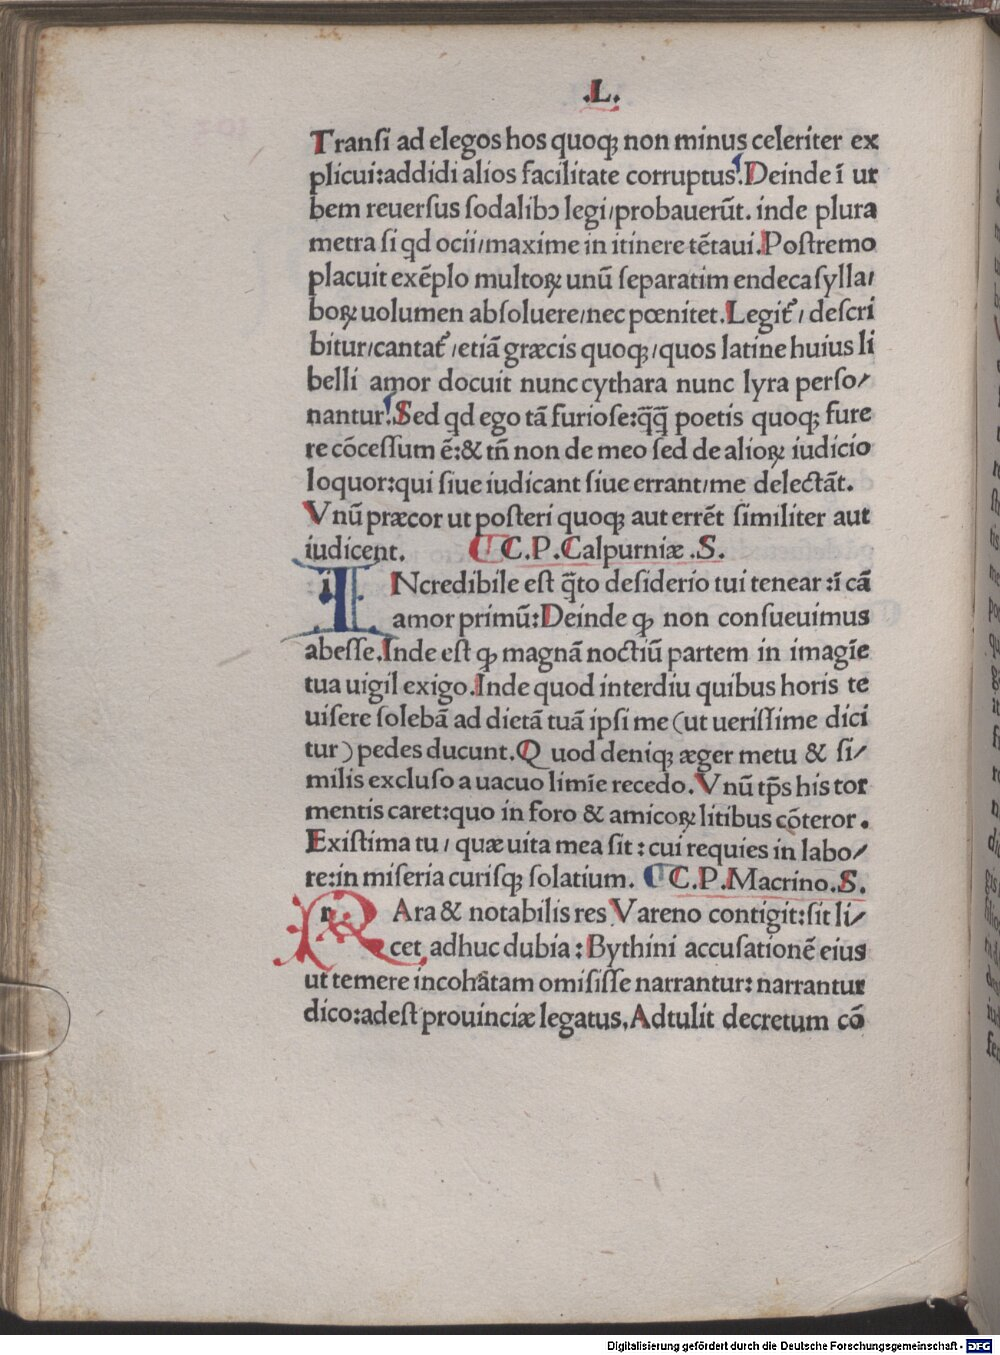 .L.
Tranſi ad elegos hos quoqꝫ non minus celeriter ex
plicui:addidi alios facilitate corruptus.Deinde ī ur
bem reuerſus ſodalibꝰ legi/probauerūt. inde plura
metra ſi qd ocii/maxime in itinere tētaui.Poſtremo
placuit exēplo multoꝝ unū ſeparatim endecaſylla/
boꝝ uolumen abſoluere/nec pœnitet.Legit᷑ / deſcri
bitur/cantat᷑ /etiā græcis quoqꝫ/quos latine huius li
belli amor docuit nunc cythara nunc lyra perſo/
nantur.Sed qd ego tā furioſe:q̄q̄ poetis quoqꝫ fure
re cōceſſum ē:& tn̄ non de meo ſed de alioꝝ iudicio
loquor:qui ſiue iudicant ſiue errant/me delectāt.
Vnū præcor ut poſteri quoqꝫ aut errēt ſimiliter aut
iudicent. C.P.Calpurniæ .S.
i INcredibile eſt q̄to deſiderio tui tenear :ī cā
amor primū:Deinde ꝙ non conſueuimus
abeſſe.Inde eſt ꝙ magnā noctiū partem in imagīe
tua uigil exigo.Inde quod interdiu quibus horis te
uiſere ſolebā ad dietā tuā ipſi me (ut ueriſſime dici
tur ) pedes ducunt.Q uod deniqꝫ æger metu & ſi/
milis excluſo a uacuo limīe recedo.Vnū tp̄s his tor
mentis caret:quo in foro & amicoꝝ litibus cōteror.
Exiſtima tu / quæ uita mea ſit : cui requies in labo/
re:in miſeria curiſqꝫ ſolatium. C.P.Macrino.S.
r RAra & notabilis res Vareno contigit:ſit li/
cet adhuc dubia : Bythini accuſationē eius
ut temere incohatam omiſiſſe narrantur: narrantur
dico:adeſt prouinciæ legatus,Adtulit decretum cō
Digitalisierung gefördert durch die Deutsche Forschungsgemeinschaft - DFG